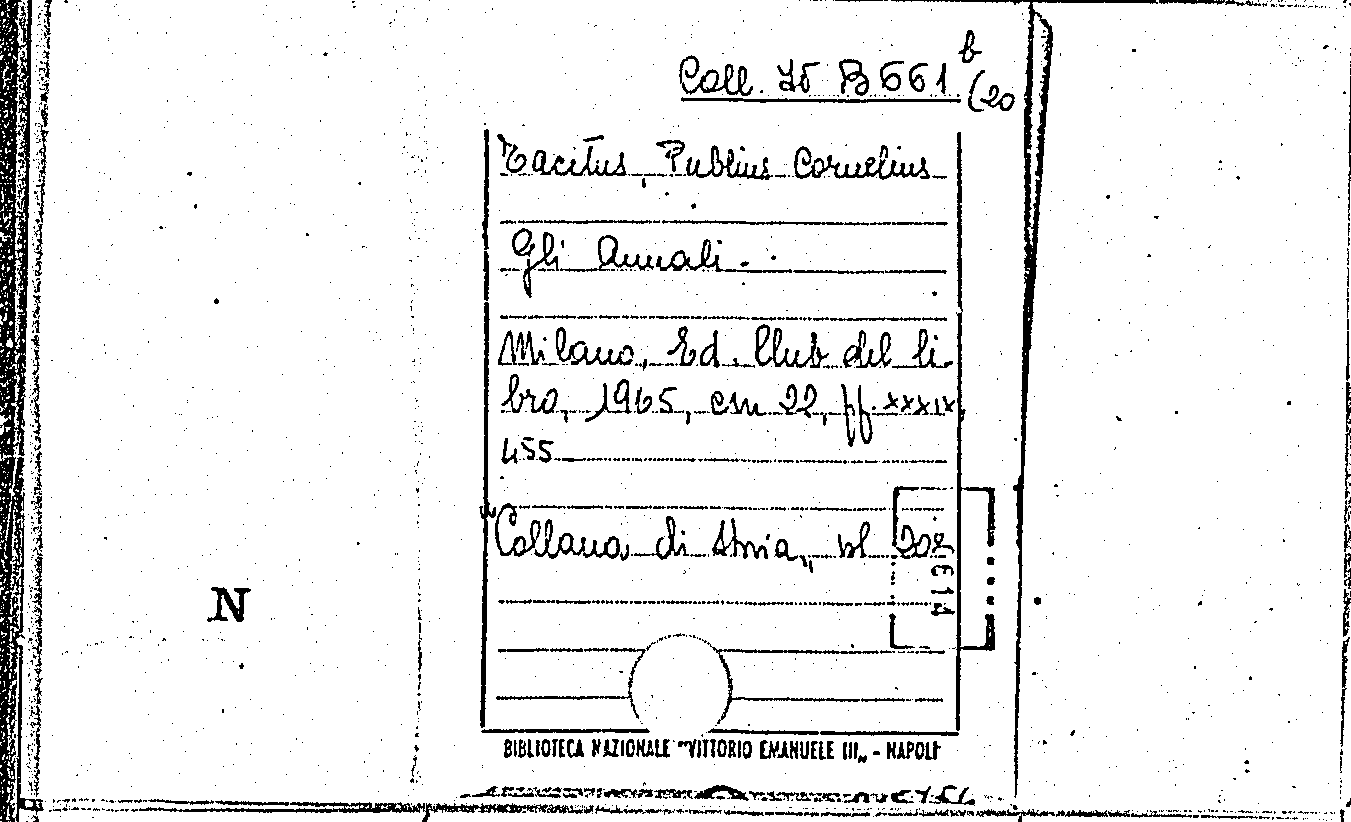 Coll. 75 B 661 b (20
Tacitus, Publius Cornelius
Gli Annali.
Milano, Ed. Club del li-
bro, 1965, cm 22, pp. XXXIX,
455
Collana di storia, vl
N
BIBLIOTECA NAZIONALE "VITTORIO EMANUELE III„ - NAPOLI